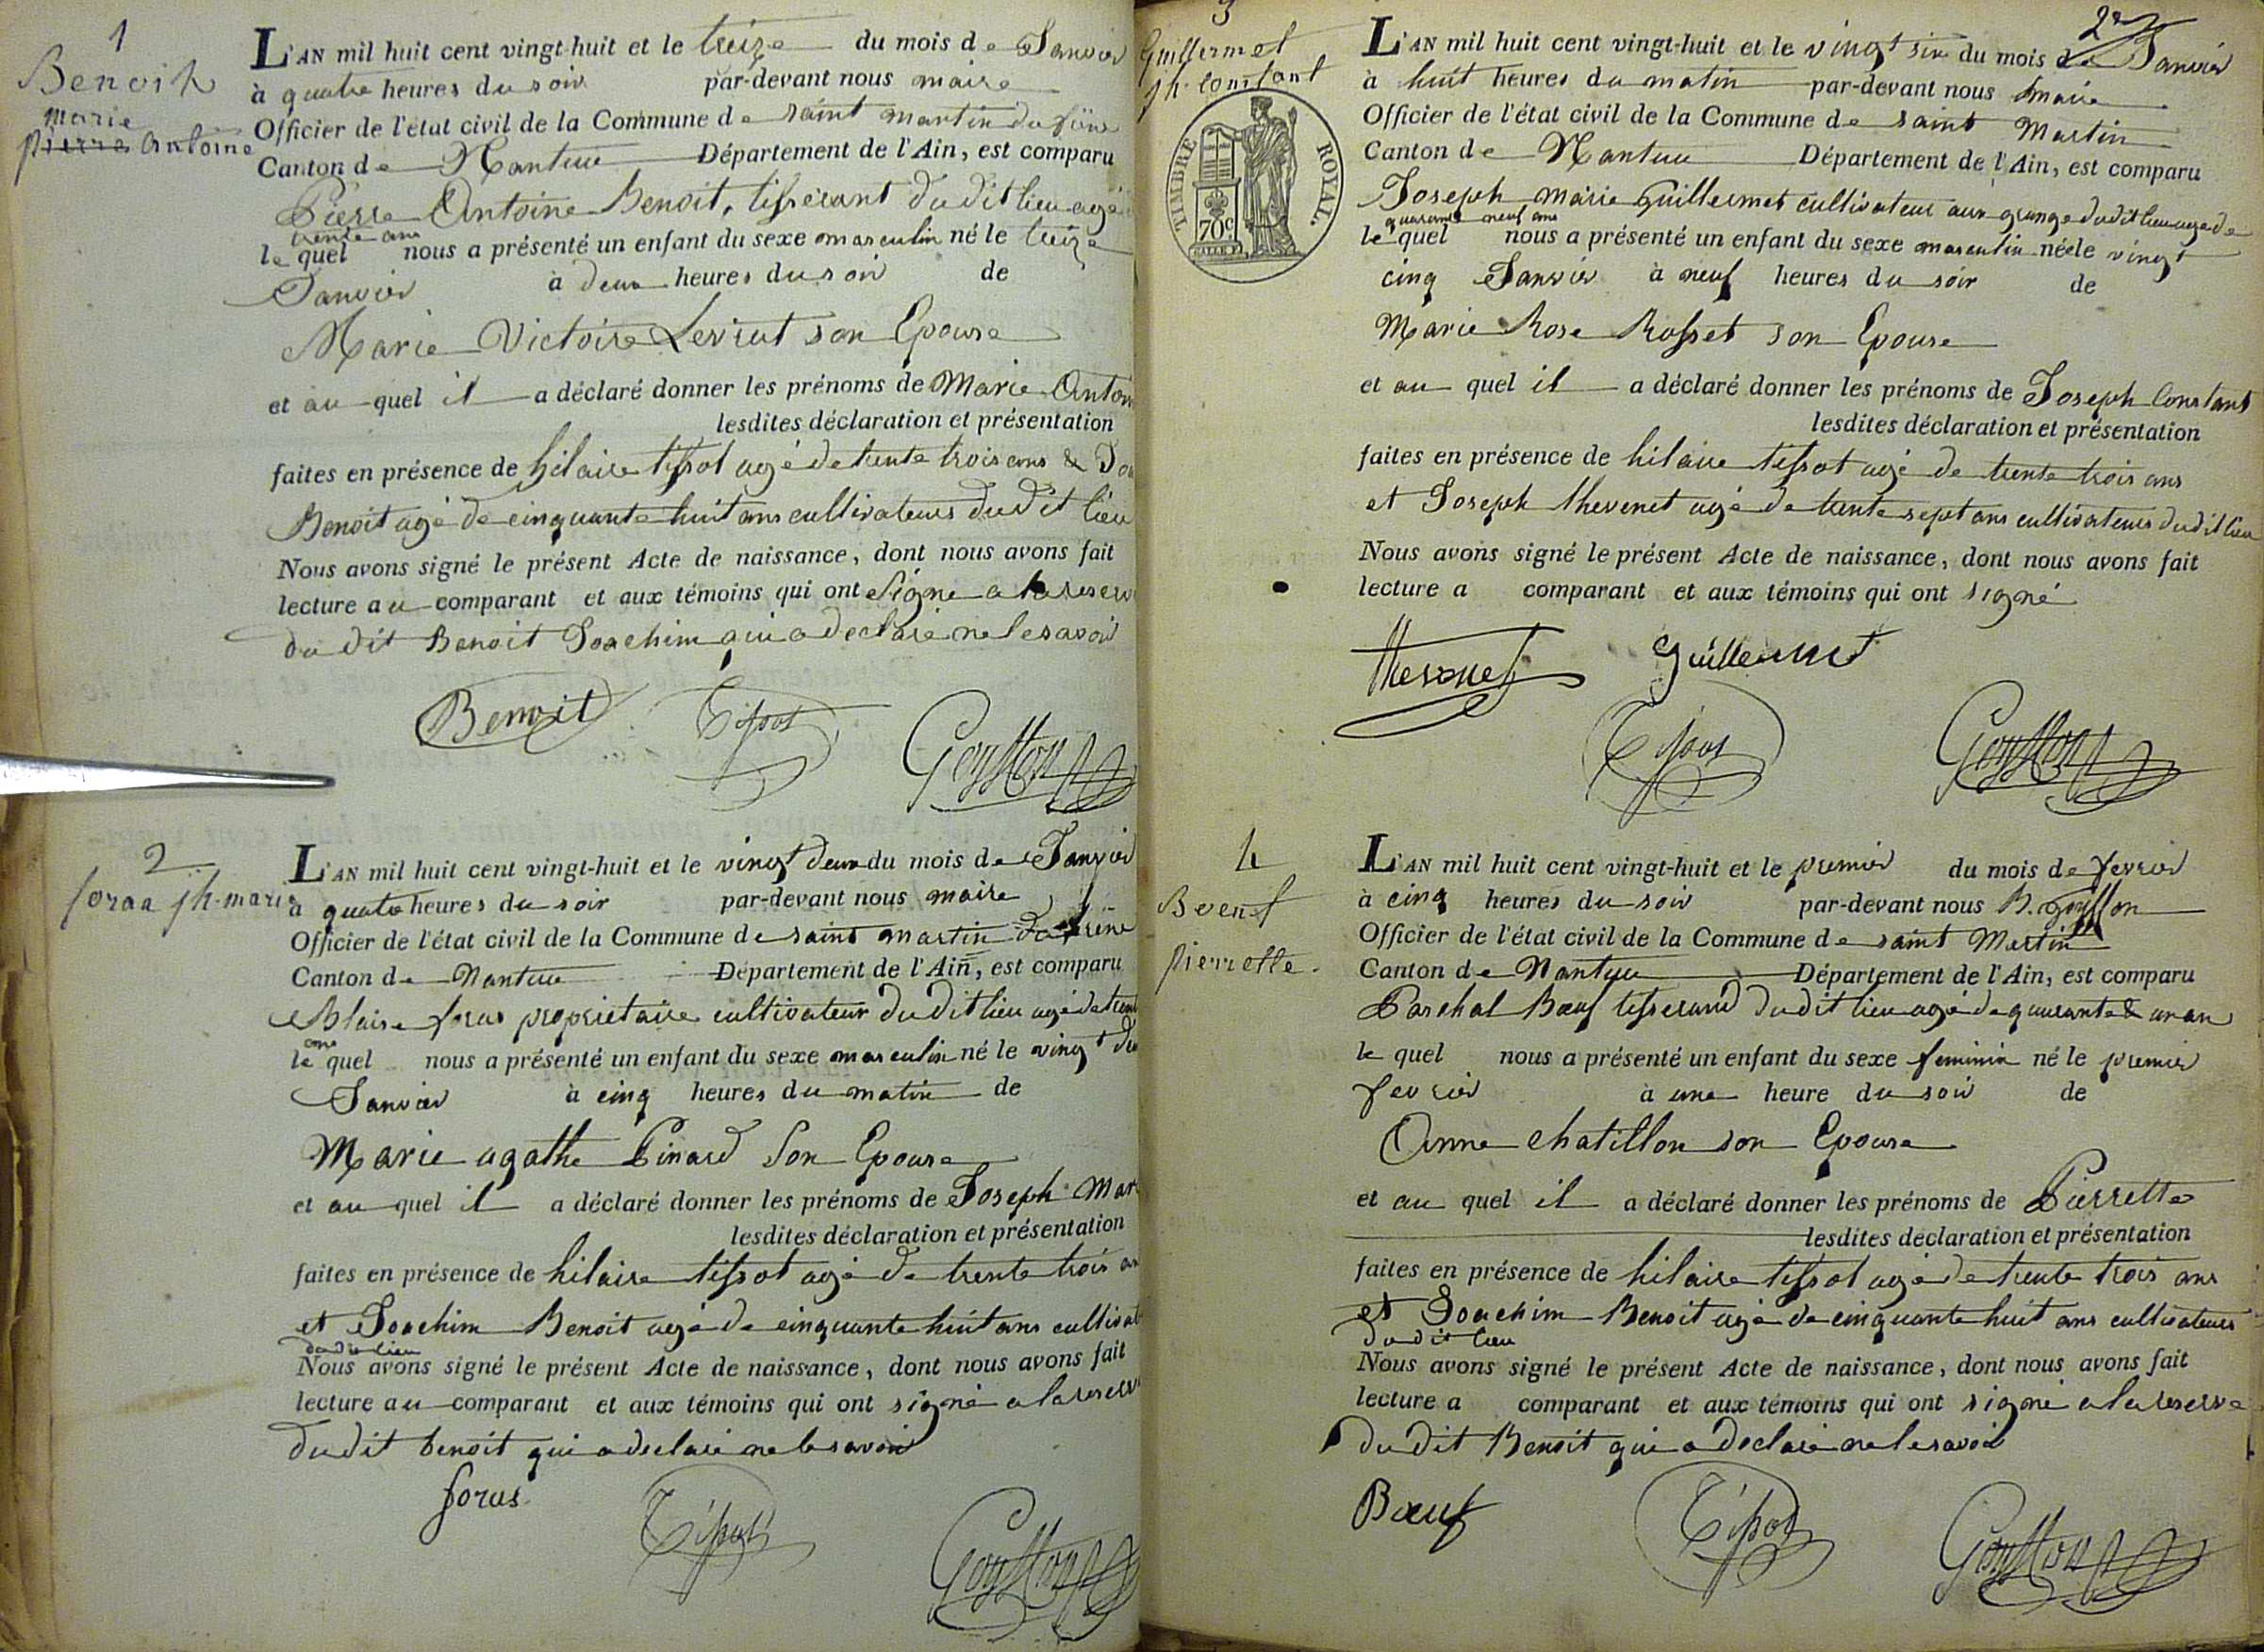 1
Benoit
marie
pierre Antoine
L'AN mil huit cent vingt-huit et le treize du mois de Janvier
à quatre heures du soir par-devant nous maire
Officier de l'état civil de la Commune de saint martin du frêne
Canton de Nantua Département de l'Ain, est comparu
Pierre Antoine Benoit, tisserant du dit lieu agé
trente ans
le quel nous a présenté un enfant du sexe masculin né le treize
Janvier à deux heures du soir de
Marie Victoire Levrat son Epouse
et au quel il a déclaré donner les prénoms de Marie Anton
lesdites déclaration et présentation
faites en présence de hilaire tissot agé de trente trois ans &
Benoit agé de cinquante huit ans cultivateurs du dit lieu
Nous avons signé le présent Acte de naissance, dont nous avons fait
lecture au comparant et aux témoins qui ont Signé a la reserv
du dit Benoit Joachim qui a declaré ne le savoir
Benoit Tissot Gouffon
2
foraz jh. marie
L'AN mil huit cent vingt-huit et le vingt deux du mois de Janvier
à quatre heures du soir par-devant nous maire
Officier de l'état civil de la Commune de saint martin du frêne
Canton de Nantua Département de l'Ain, est comparu
Blaise foras propriétaire cultivateur du dit lieu agé de trent
ans
le quel nous a présenté un enfant du sexe masculin né le vingt deu
Janvier à cinq heures du matin de
Marie agathe Pinard Son Epouse
et au quel il a déclaré donner les prénoms de Joseph Mar
lesdites déclaration et présentation
faites en présence de hilaire tissot agé de trente trois an
et Joachim Benoit agé de cinquante huit ans cultivat
du dit lieu
Nous avons signé le présent Acte de naissance, dont nous avons fait
lecture au comparant et aux témoins qui ont signé a la reserv
du dit benoit qui a declaré ne le savoir
foras Tissot Gouffon
3
Guillermet
jh. constant
TIMBRE ROYAL.
70c
L'AN mil huit cent vingt-huit et le vingt six du mois de Janvier
à huit heures du matin par-devant nous maire
Officier de l'état civil de la Commune de saint Martin
Canton de Nantua Département de l'Ain, est comparu
Joseph marie Guillermet cultivateur aux grange du dit lieu agé de
quarante neuf ans
le quel nous a présenté un enfant du sexe masculin né le vingt
cinq Janvier à neuf heures du soir de
Marie Rose Rosset son Epouse
et au quel il a déclaré donner les prénoms de Joseph Constant
lesdites déclaration et présentation
faites en présence de hilaire tissot agé de trente trois ans
et Joseph thevenet agé de trente sept ans cultivateurs du dit lieu
Nous avons signé le présent Acte de naissance, dont nous avons fait
lecture a comparant et aux témoins qui ont signé
thevenet Guillermet
Tissot Gouffon
4
Pierrette.
L'AN mil huit cent vingt-huit et le premier du mois de fevrier
à cinq heures du soir par-devant nous B. Gouffon
Officier de l'état civil de la Commune de saint Martin
Canton de Nantua Département de l'Ain, est comparu
Paschal Bœuf tisserand du dit lieu agé de quarante & un an
le quel nous a présenté un enfant du sexe feminin né le premier
fevrier à une heure du soir de
Anne chatillon son Epouse
et au quel il a déclaré donner les prénoms de Pierrette
lesdites déclaration et présentation
faites en présence de hilaire tissot agé de trente trois ans
et Joachim Benoit agé de cinquante huit ans cultivateurs
du dit lieu
Nous avons signé le présent Acte de naissance, dont nous avons fait
lecture a comparant et aux témoins qui ont signé a la reserve
du dit Benoit qui a declaré ne le savoir
Bœuf Tissot Gouffon